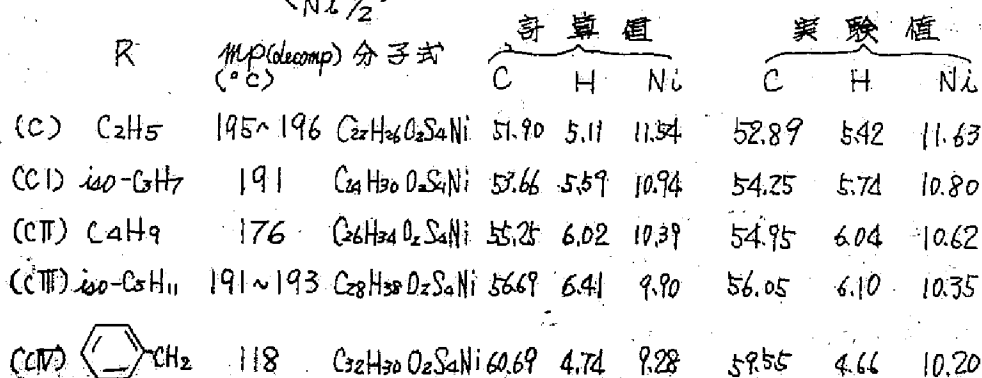 (Ni/2
計算値 実験値
R mp(decomp) 分子式 C H Ni C H Ni
(°C)
(C) C2H5 195~196 C22H26O2S4Ni 51.90 5.11 11.54 52.89 5.42 11.63
(CI) iso-C3H7 191 C24H30O2S4Ni 53.66 5.59 10.94 54.25 5.74 10.80
(CII) C4H9 176 C26H34O2S4Ni 55.25 6.02 10.39 54.95 6.04 10.62
(CIII) iso-C5H11 191~193 C28H38O2S4Ni 56.69 6.41 9.90 56.05 6.10 10.35
(CIV) CH2 118 C32H30O2S4Ni 60.69 4.74 9.28 59.55 4.66 10.20